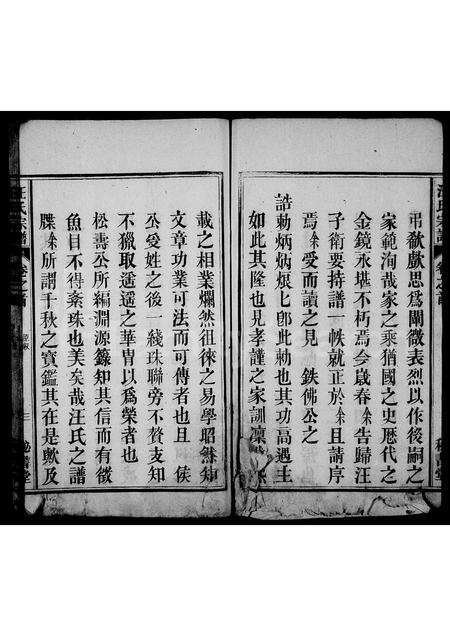 汪氏宗譜
卷之首
弔欷歔思爲闡微表烈以作後嗣之
家範洵哉家之乘猶國之史歷代之
金鏡永堪不朽焉今歲春余告歸汪
子衛要持譜一帙就正於余且請序
焉余受而讀之見　鉄佛公之
誥勅炳炳烺七卽此勅也其功高遇主
如此其隆也見孝謹之家訓凜
載之相業爛然徂徠之易學昭然知
文章功業可法而可傳者也且　侯
公受姓之後一綫珠聯旁不贅支知
不獵取遥遥之華冑以爲榮者也
松壽公所編淵源錄知其信而有徵
魚目不得紊珠也美矣哉汪氏之譜
牒余所謂千秋之寶鑑其在是歟及
汪氏宗譜
卷之首
三